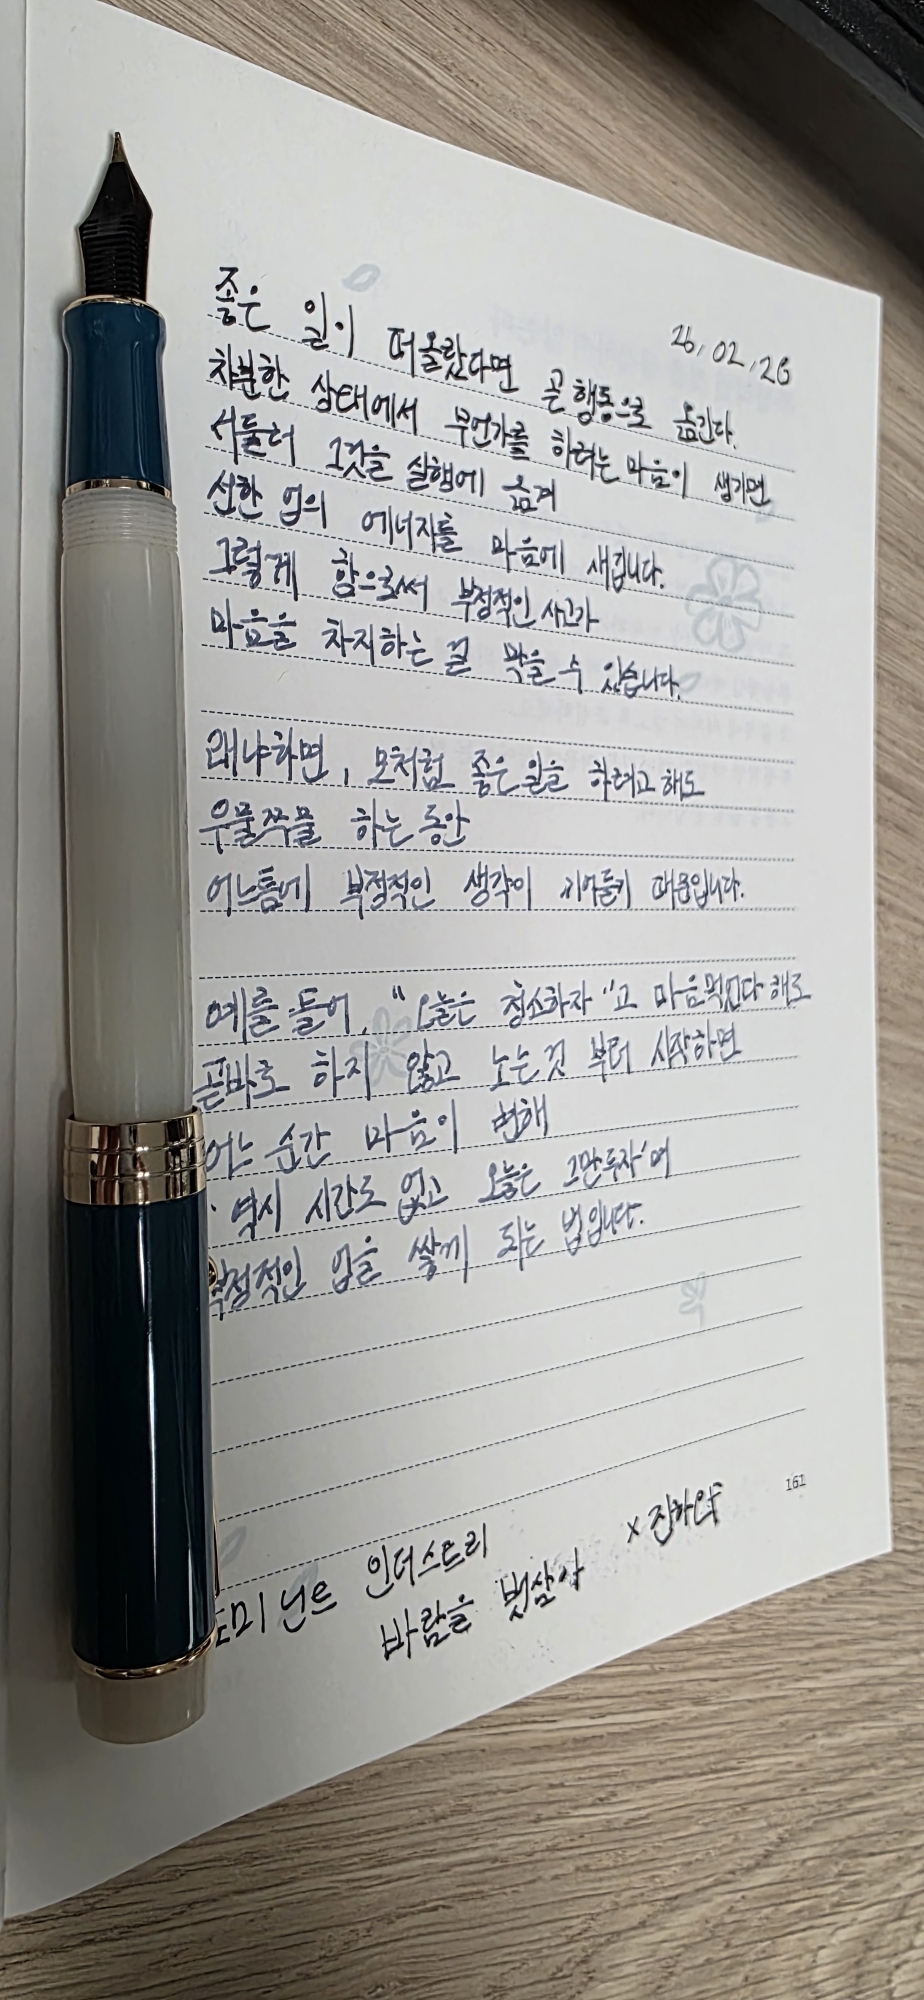 26.02.28
좋은 일이 떠올랐다면 곧 행동으로 옮긴다.
차분한 상태에서 무언가를 하려는 마음이 생기면
서둘러 그것을 실행에 옮겨
선한 업의 에너지를 마음에 새깁니다.
그렇게 함으로써 부정적인 사고가
마음을 차지하는 걸 막을 수 있습니다.
왜냐하면, 모처럼 좋은 일을 하려고 해도
우물쭈물 하는 동안
어느틈에 부정적인 생각이 끼어들기 때문입니다.
예를 들어, "오늘은 청소하자"고 마음먹었다 해도
곧바로 하지 않고 노는것 부터 시작하면
어느 순간 마음이 변해
' 역시 시간도 없고 오늘은 그만두자'며
부정적인 업을 쌓게 되는 법입니다.
161
도미넌트 인더스트리 x 진하오
바람을 벗삼아